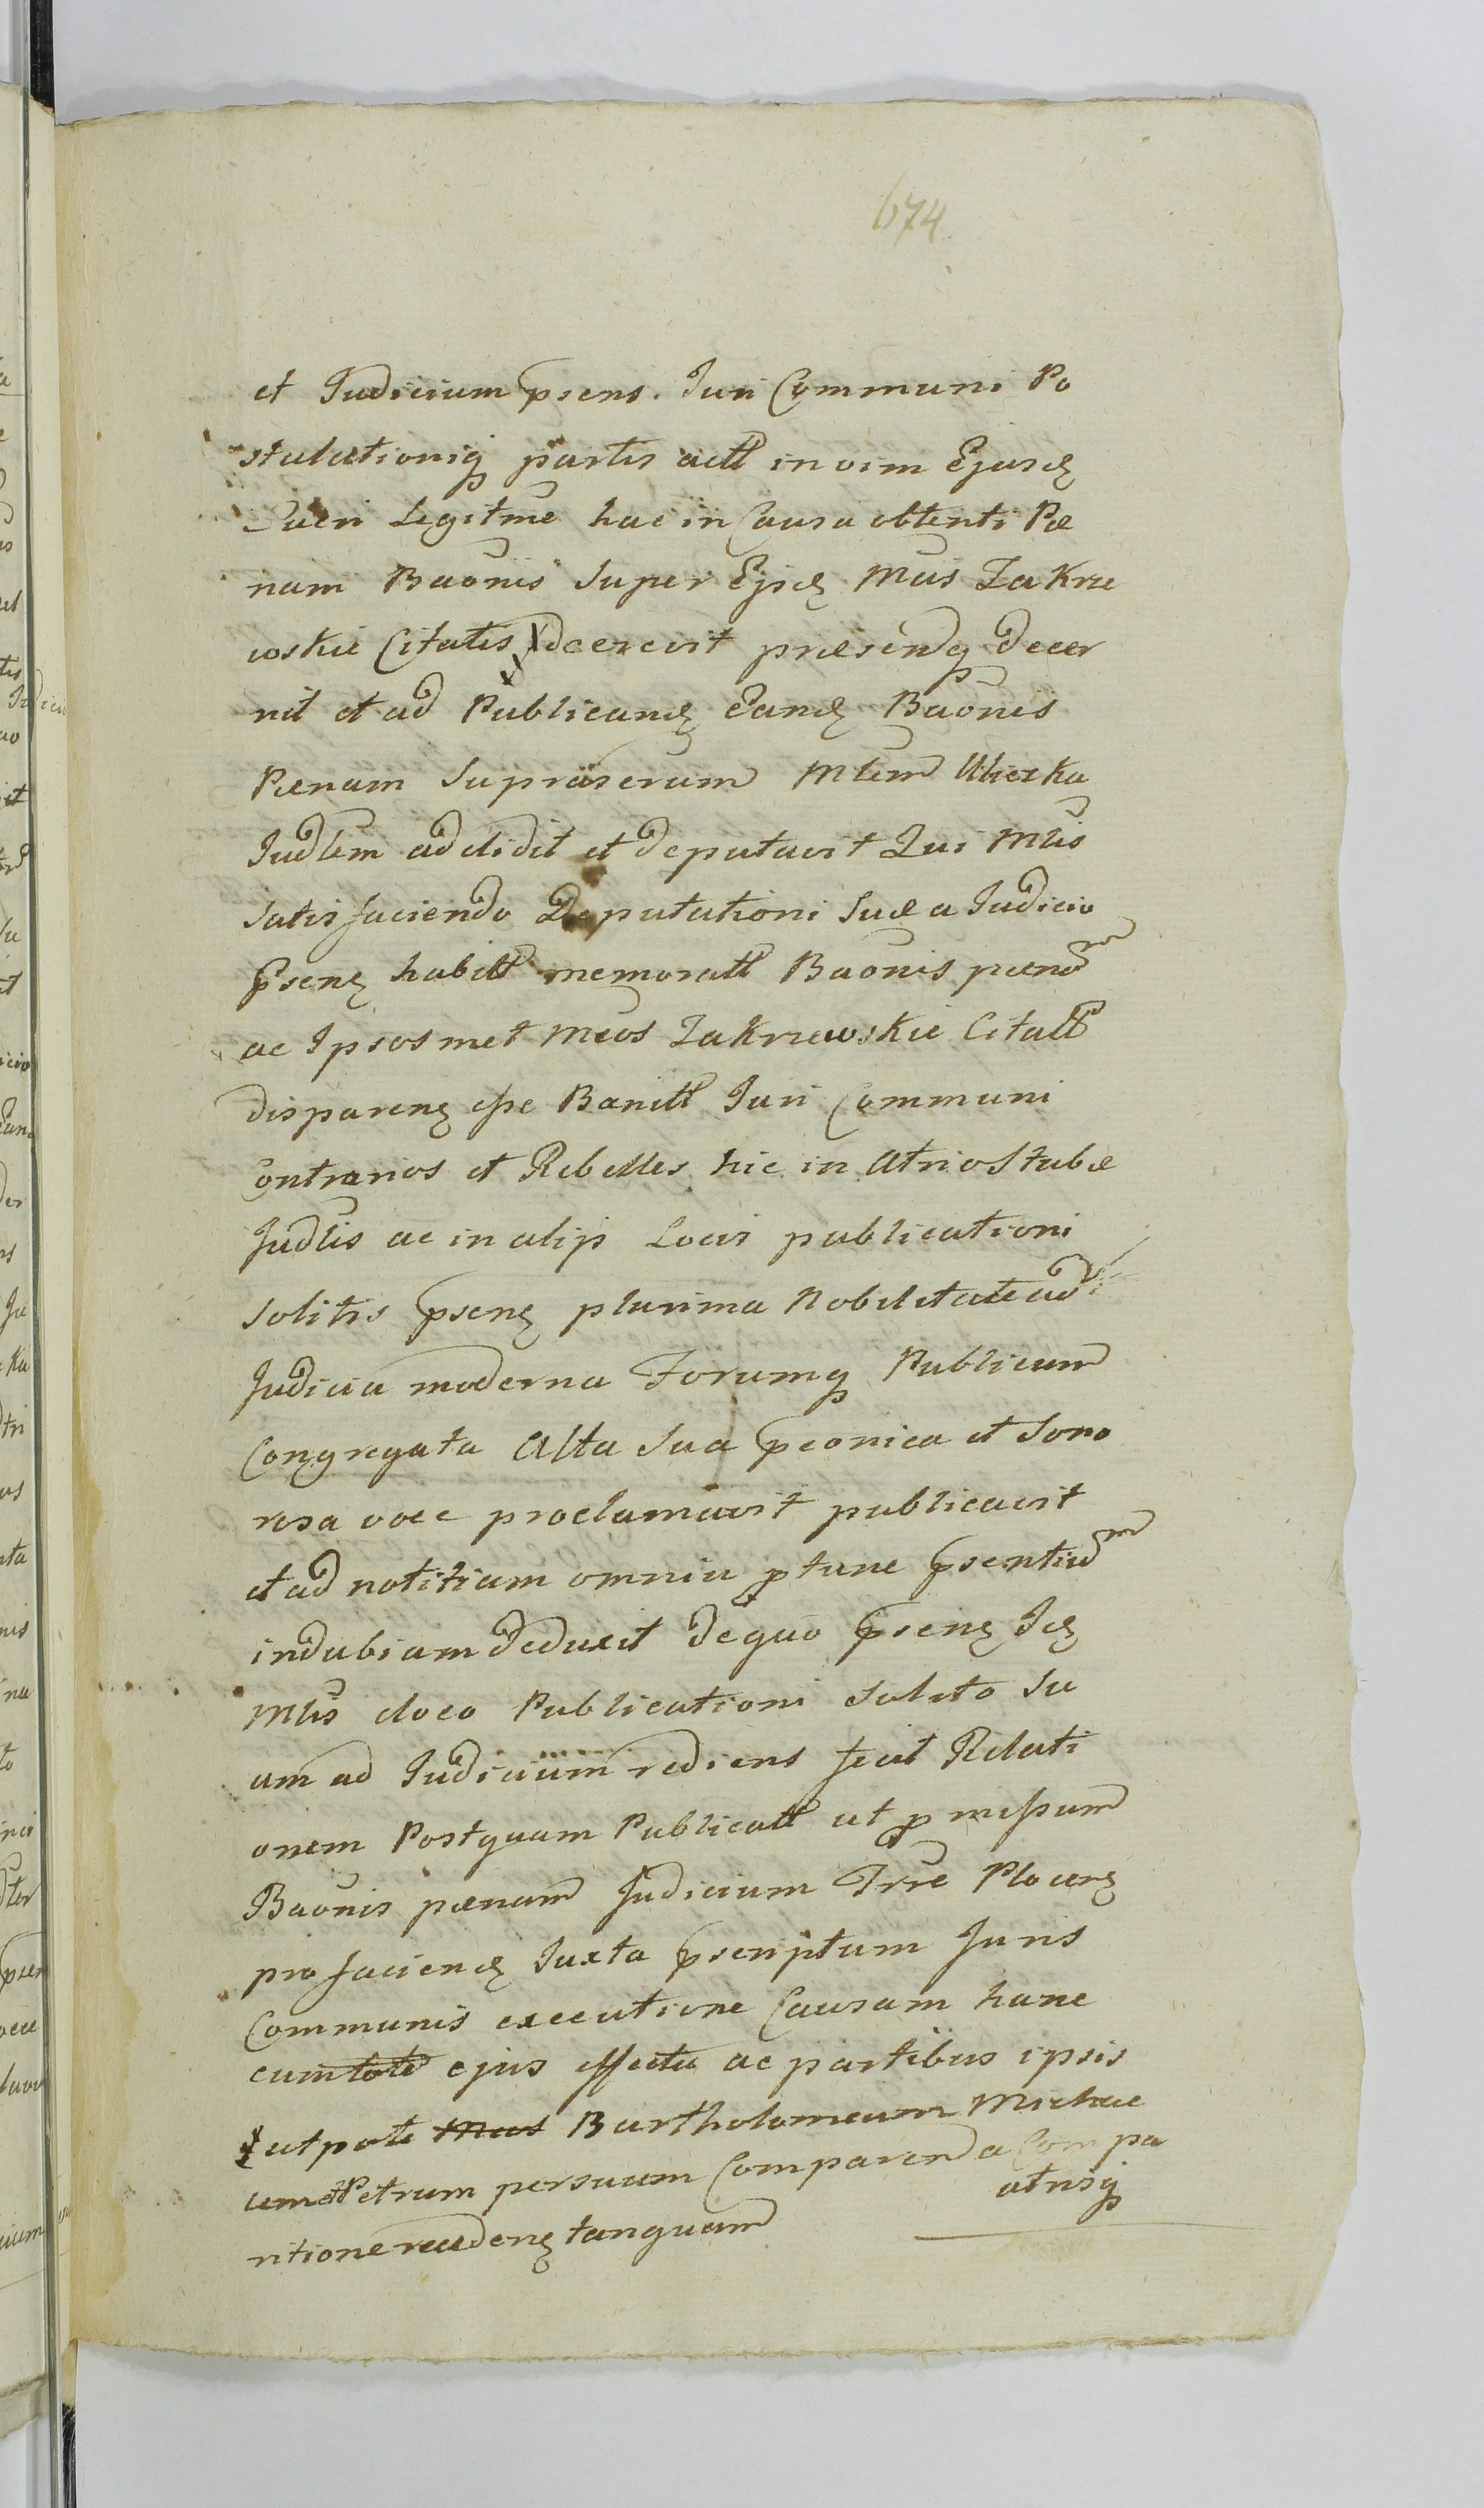 674
et Judicium psens. Juri Communi Po
stulationiq partis actt in vim Ejusd
Lucri Legitme hac in Causa obtenti Pæ
nam Baonis super Ejsd Mcis Zakrze
wskie Citatis decrevit præsentq decer
nit et ad Publicand Eand Baonis
Pænam Supraserum Mlem Uherka
Judlem addidit et deputavit Qui Mlis
satisfaciendo Deputationi Suæ a Judicio
Psen habitt memoratt Baonis pænam
ac Ipsosmet Mcos Zakrzewskie Citatt
disparen esse Banitt Juri Communi
Contrarios et Rebelles hic in Atrio Stubæ
Judlis ac in alijs Locis publicationi
solitis psen plurima Nobilitate ad
Judicia moderna Forumq Publicum
Congregata Alta Sua pconica et Sono
rosa voce proclamavit publicavit
et ad notitiam omniu ptunc psentium
indubiam deduxit de quo psen Id
Mlis eloco Publicationi Solito Su
am ad Judicium rediens fecit Relati
onem Postquam Publicatt ut pmissum
Baonis pænam Judicium Trre Plocen
pro faciend Juxta pscriptum Juris
Communis executione Causam hanc
cum toto ejus effectu ac partibus ipsis
utpote Mcos Bartholomeum Michae
lem et Petrum personam Comparend a Compa
ritione recaden tanquam
atrisq